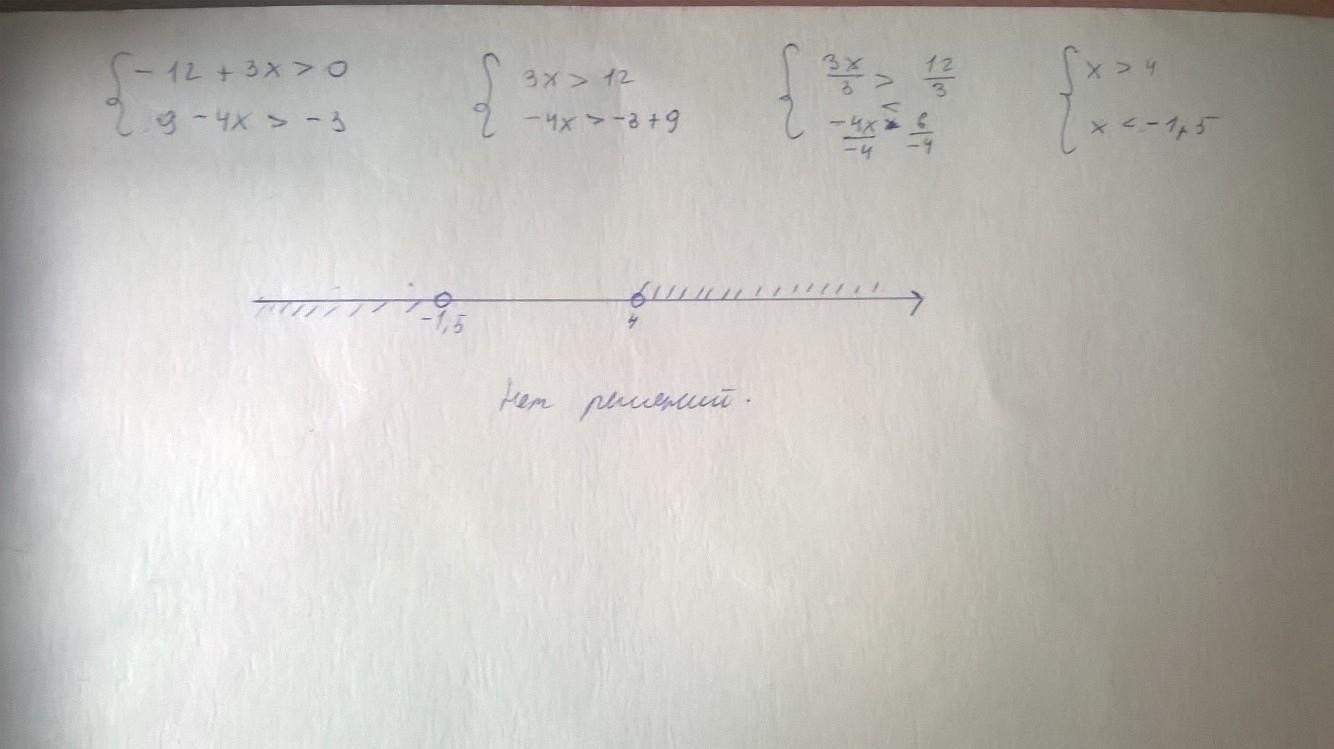 { - 12 + 3x > 0
9 - 4x > -3
{ 3x > 12
-4x > -3+9
{ 3x/3 > 12/3
-4x/-4 < 6/-4
{ x > 4
x < -1,5
-1,5 4
Нет решений.